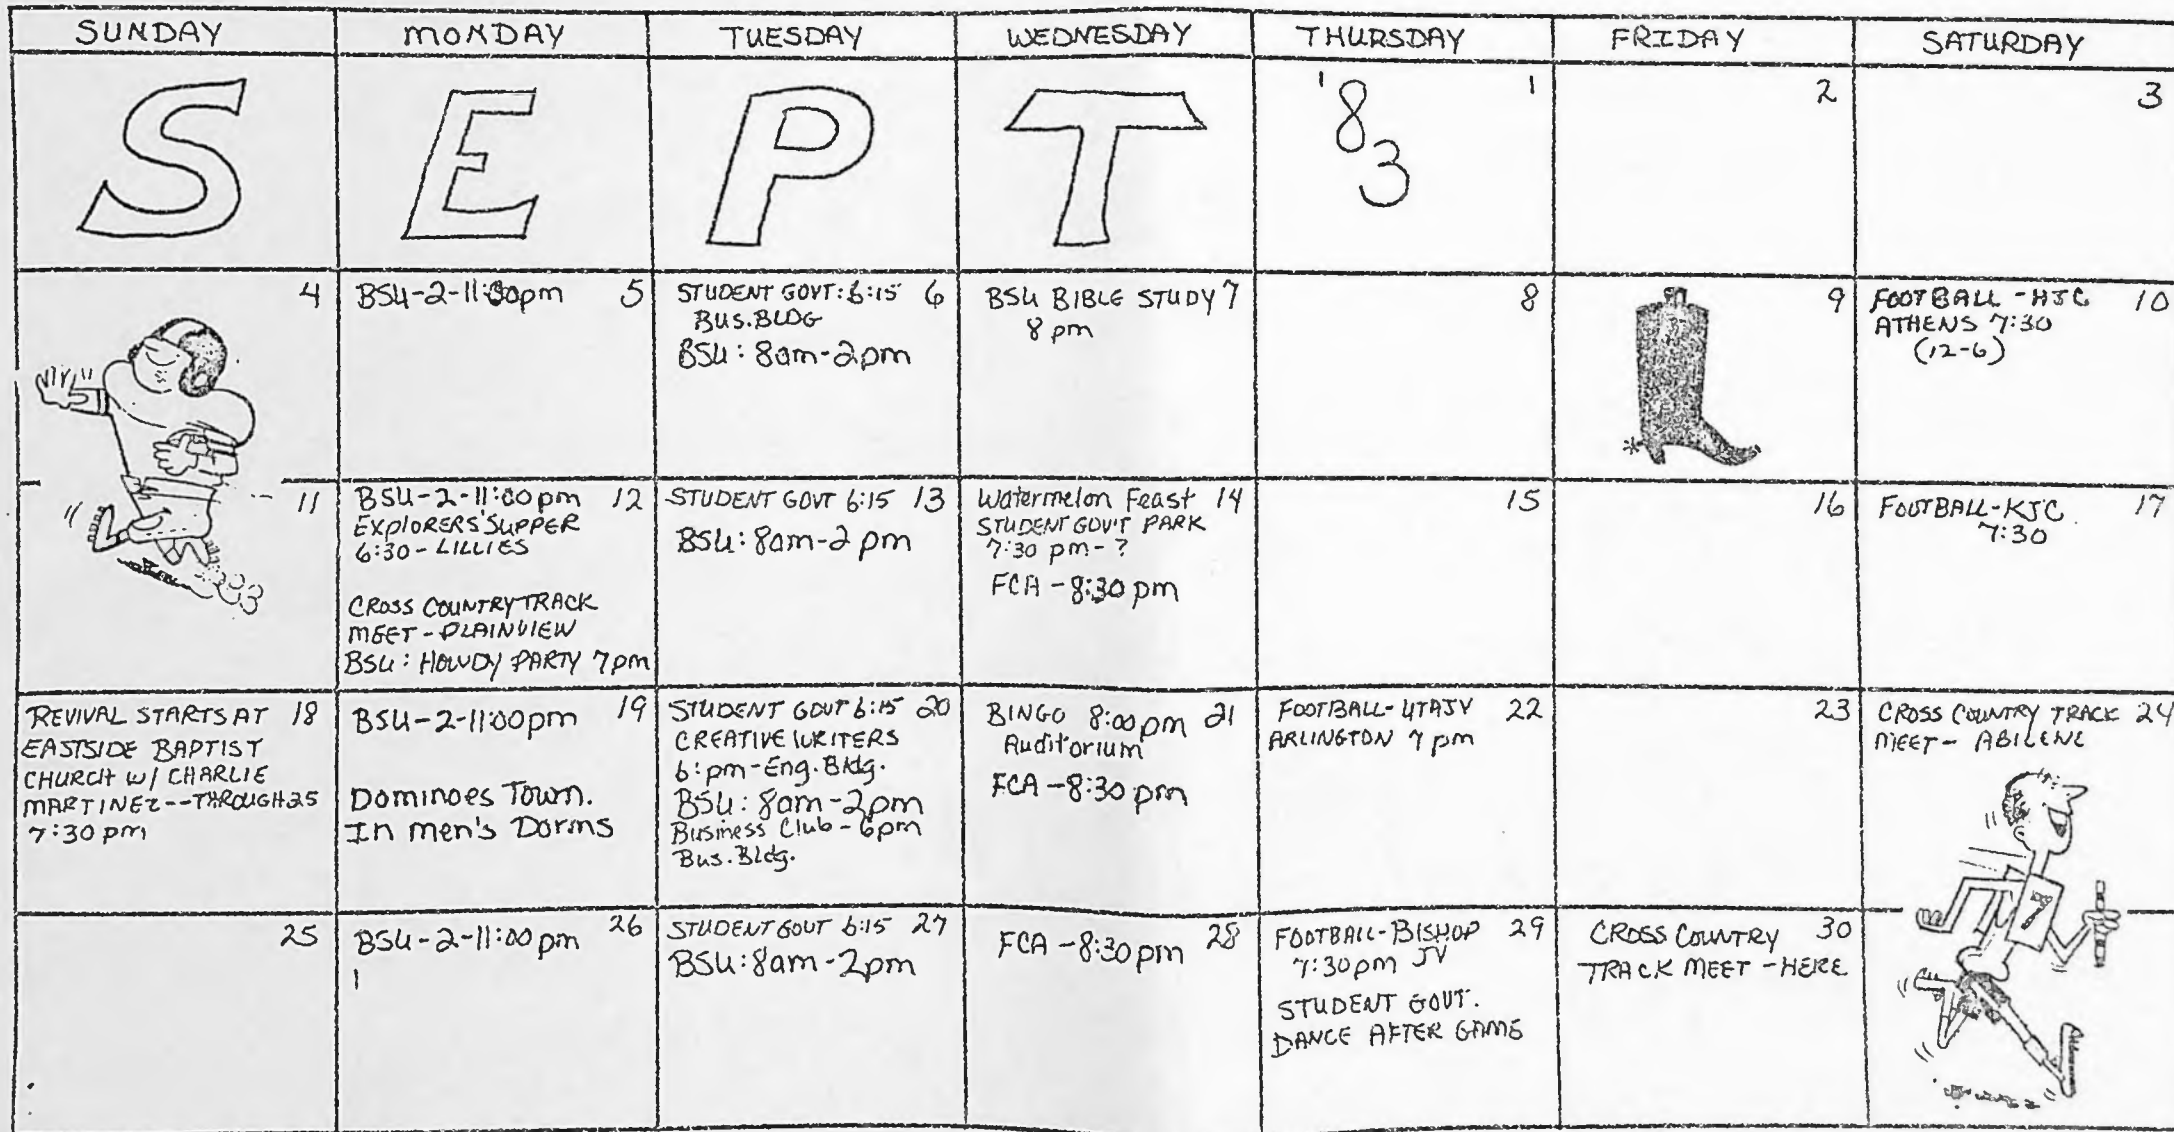 SUNDAY MONDAY TUESDAY WEDNESDAY THURSDAY FRIDAY SATURDAY
S
E
P
T
'83 1
2
3
4
BSU-2-11:00pm 5
STUDENT GOVT: 6:15 6
BUS. BLDG
BSU: 8am-2pm
BSU BIBLE STUDY 7
8 pm
8
9
FOOTBALL - HJC 10
ATHENS 7:30
(12-6)
11
BSU-2-11:00pm 12
EXPLORERS' SUPPER
6:30 - LILLIES
CROSS COUNTRY TRACK
MEET - PLAINVIEW
BSU: HOWDY PARTY 7pm
STUDENT GOVT 6:15 13
BSU: 8am-2pm
Watermelon Feast 14
STUDENT GOV'T PARK
7:30 pm - ?
FCA - 8:30 pm
15
16
FOOTBALL-KJC 17
7:30
REVIVAL STARTS AT 18
EASTSIDE BAPTIST
CHURCH W/ CHARLIE
MARTINEZ -- THROUGH 25
7:30 pm
BSU-2-11:00pm 19
Dominoes Town.
In men's Dorms
STUDENT GOVT 6:15 20
CREATIVE WRITERS
6:pm-Eng. Bldg.
BSU: 8am-2pm
Business Club - 6pm
Bus. Bldg.
BINGO 8:00pm 21
Auditorium
FCA - 8:30 pm
FOOTBALL- UTAJV 22
ARLINGTON 7 pm
23
CROSS COUNTRY TRACK 24
MEET - ABILENE
7
25
BSU-2-11:00 pm 26
STUDENT GOVT 6:15 27
BSU: 8am-2pm
FCA - 8:30 pm 28
FOOTBALL-BISHOP 29
7:30pm JV
STUDENT GOVT.
DANCE AFTER GAME
CROSS COUNTRY 30
TRACK MEET - HERE